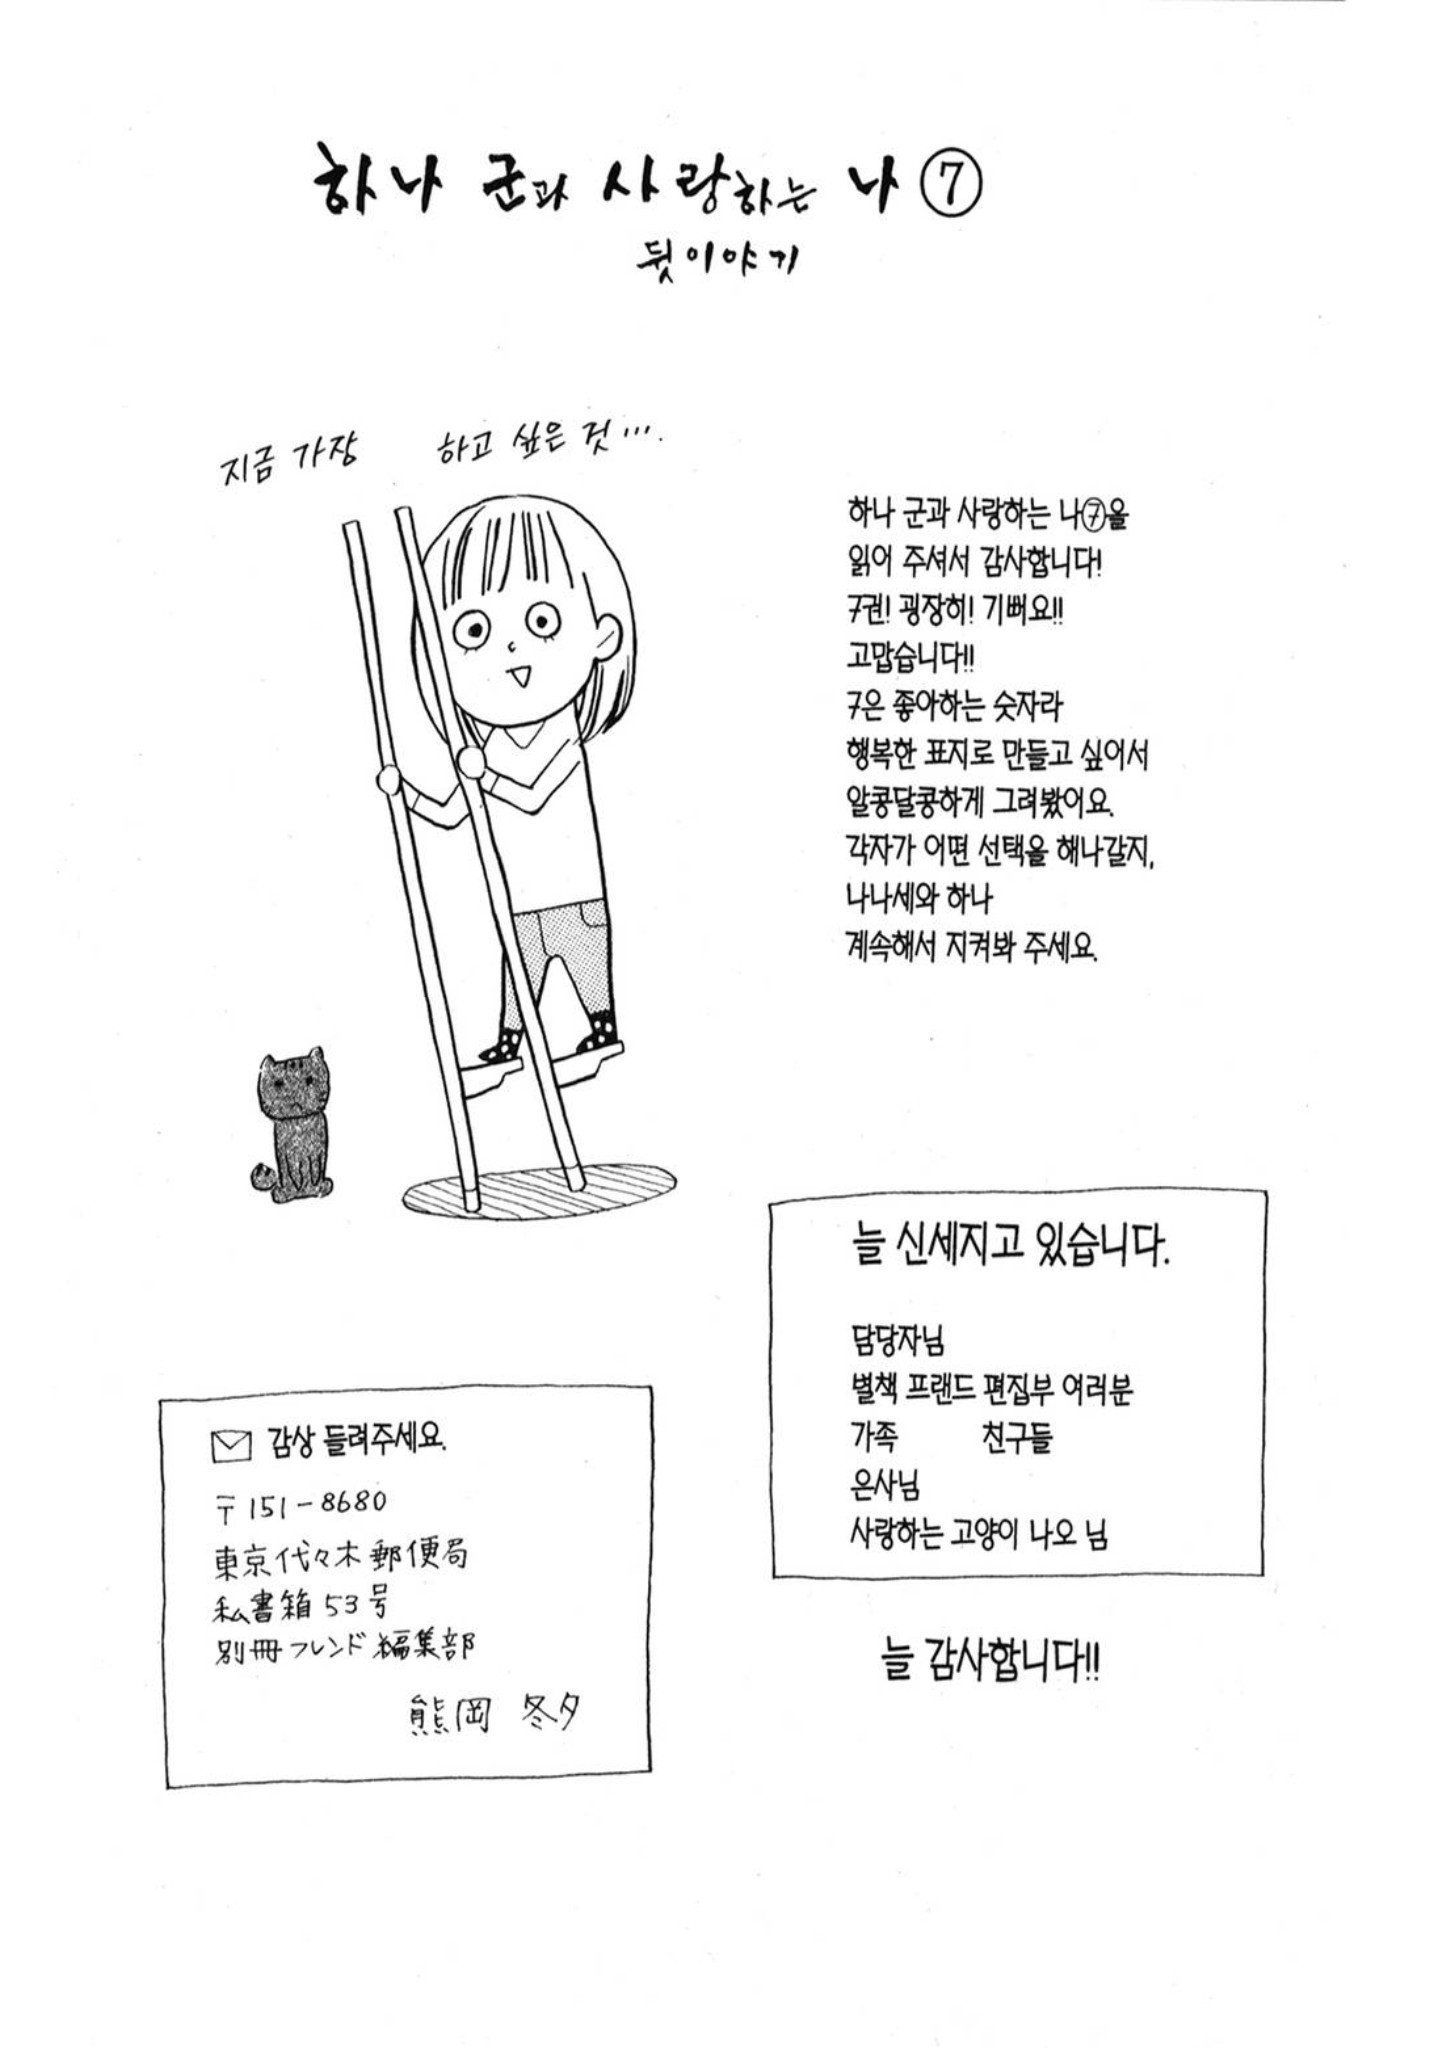 하나 군과 사랑하는 나 ⑦
뒷이야기
지금 가장 하고 싶은 것….
하나 군과 사랑하는 나⑦을
읽어 주셔서 감사합니다!
7권! 굉장히! 기뻐요!!
고맙습니다!!
7은 좋아하는 숫자라
행복한 표지로 만들고 싶어서
알콩달콩하게 그려봤어요.
각자가 어떤 선택을 해나갈지,
나나세와 하나
계속해서 지켜봐 주세요.
늘 신세지고 있습니다.
담당자님
별책 프랜드 편집부 여러분
가족 친구들
은사님
사랑하는 고양이 나오 님
늘 감사합니다!!
감상 들려주세요.
〒151-8680
東京代々木郵便局
私書箱53号
別冊フレンド編集部
熊岡 冬夕